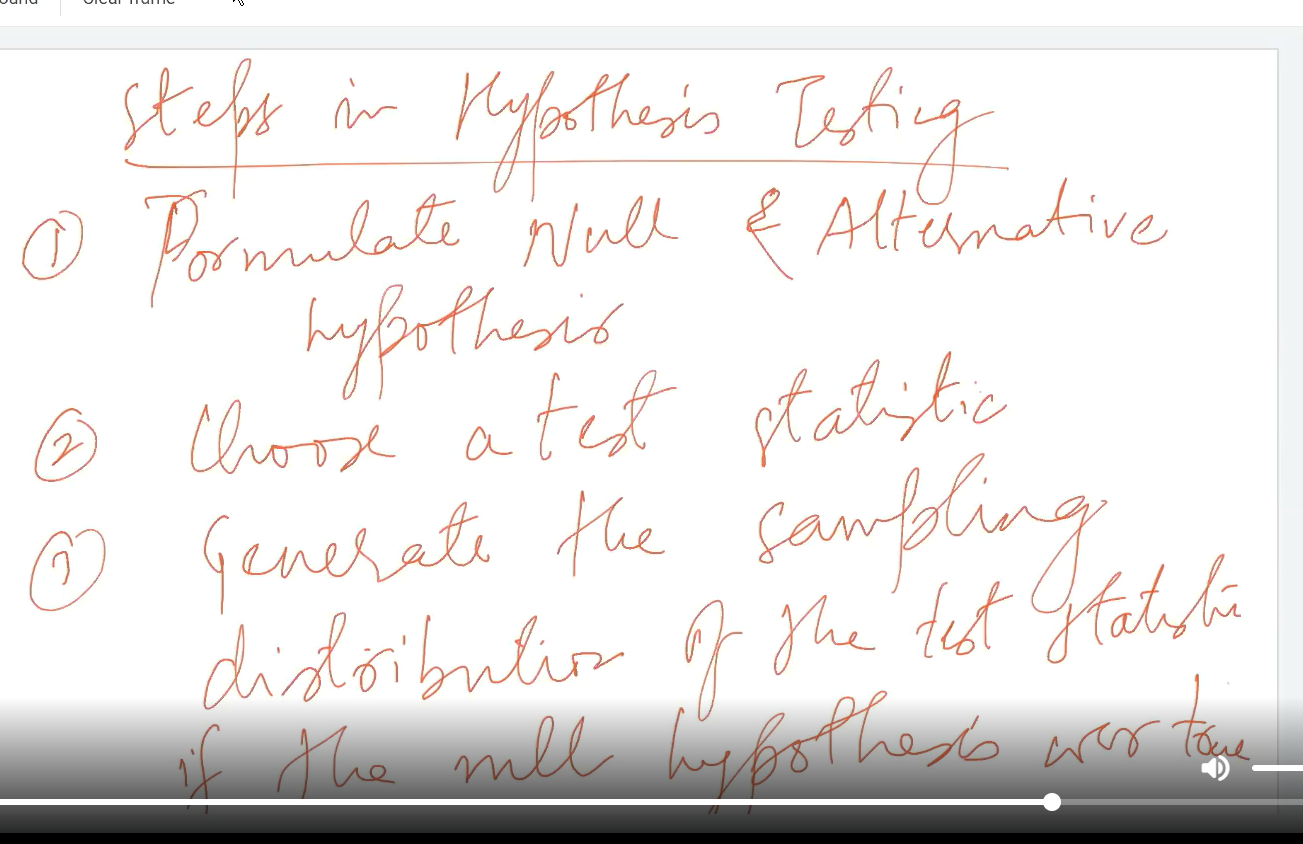 Clear frame
Steps in Hypothesis Testing
① Formulate Null & Alternative
hypothesis
② Choose a test statistic
③ Generate the sampling
distribution of the test statistic
if the null hypothesis was true